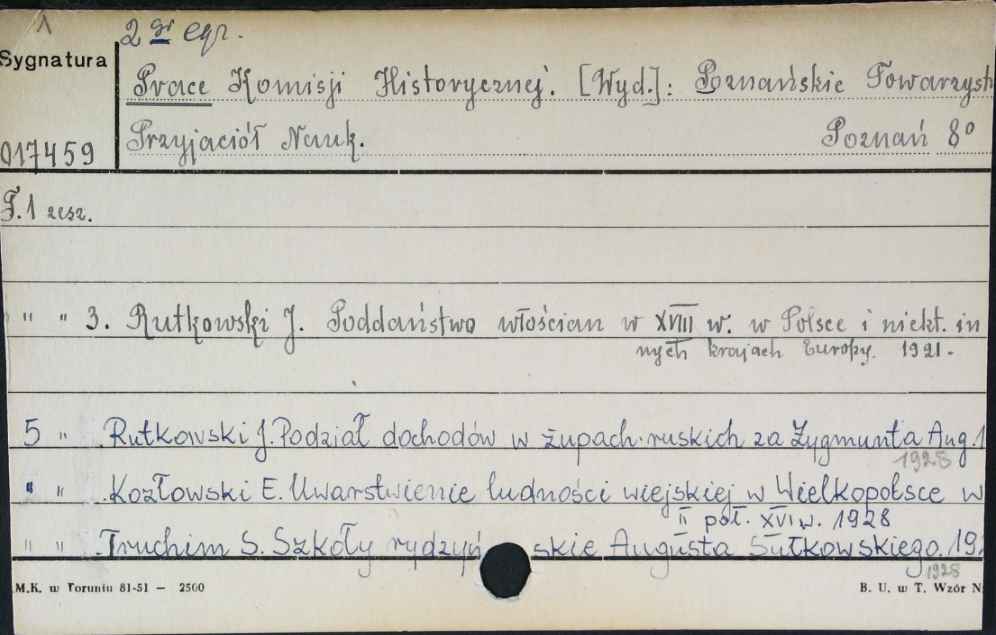 1
2 gi egz.
Sygnatura
Prace Komisji Historycznej. [Wyd.]: Poznańskie Towarzyst
Przyjaciół Nauk. Poznań 8°
017459
T.1 zesz.
" " 3. Rutkowski J. Poddaństwo włościan w XVIII w. w Polsce i niekt. in
nych krajach Europy. 1921.
5 " Rutkowski J. Podział dochodów w żupach ruskich za Zygmunta Aug.
1928
" " Kozłowski E. Uwarstwienie ludności wiejskiej w Wielkopolsce w
II poł. XVI w. 1928
" " Truchim S. Szkoły rydzyń skie Augusta Sułkowskiego. 19
1928
M.K. w Toruniu 81-51 — 2500 B. U. w T. Wzór N